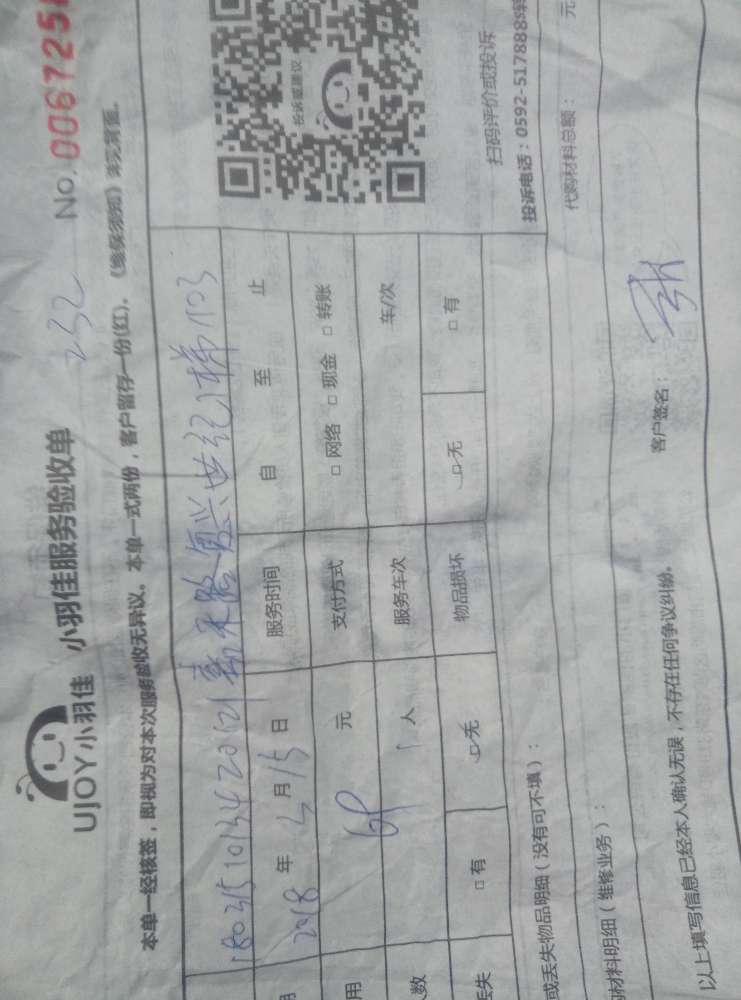 UJOY小羽佳 小羽佳服务验收单 232 No.0067258
本单一经核签，即视为对本次服务验收无异议。本单一式两份，客户留存一份(红)。《维保须知》详见背面。
投诉或建议
扫码评价或投诉
投诉电话：0592-5178885转
嘉禾路复兴世纪1梯103
2018 年 5 月 15 日 服务时间 自 至 止
用 68 元 支付方式 □ 网络 □ 现金 □ 转账
数 1 人 服务车次 车/次
丢失 □ 有 □ 无 物品损坏 □ 无 □ 有
或丢失物品明细（没有可不填）：
材料明细（维修业务）： 代购材料总额： 元
以上填写信息已经本人确认无误，不存在任何争议纠纷。 客户签名：